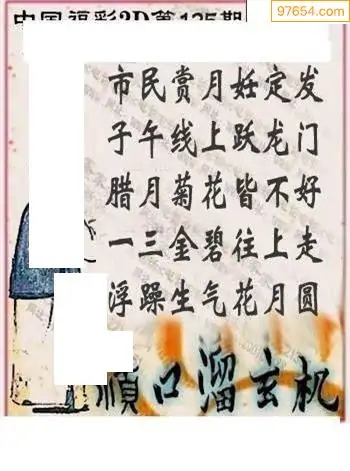 97654.com
中国福彩3D第125期
市民赏月妊定发
子午线上跃龙门
腊月菊花皆不好
一三金碧往上走
浮躁生气花月圆
顺口溜玄机